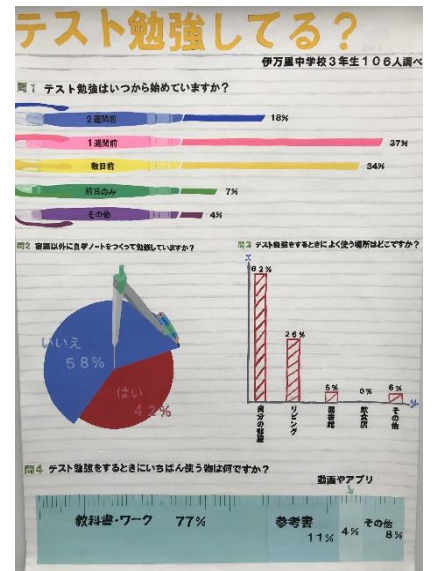 テスト勉強してる？
伊万里中学校3年生106人調べ
問1 テスト勉強はいつから始めていますか？
2週間前 18%
1週間前 37%
数日前 34%
前日のみ 7%
その他 4%
問2 宿題以外に自学ノートをつくって勉強していますか？
いいえ
58%
はい
42%
問3 テスト勉強をするときによく使う場所はどこですか？
62%
26%
6%
0%
6%
自分の部屋
リビング
図書館
飲食店
その他
問4 テスト勉強をするときにいちばん使う物は何ですか？
動画やアプリ
教科書・ワーク 77%
参考書
11%
4%
その他
8%